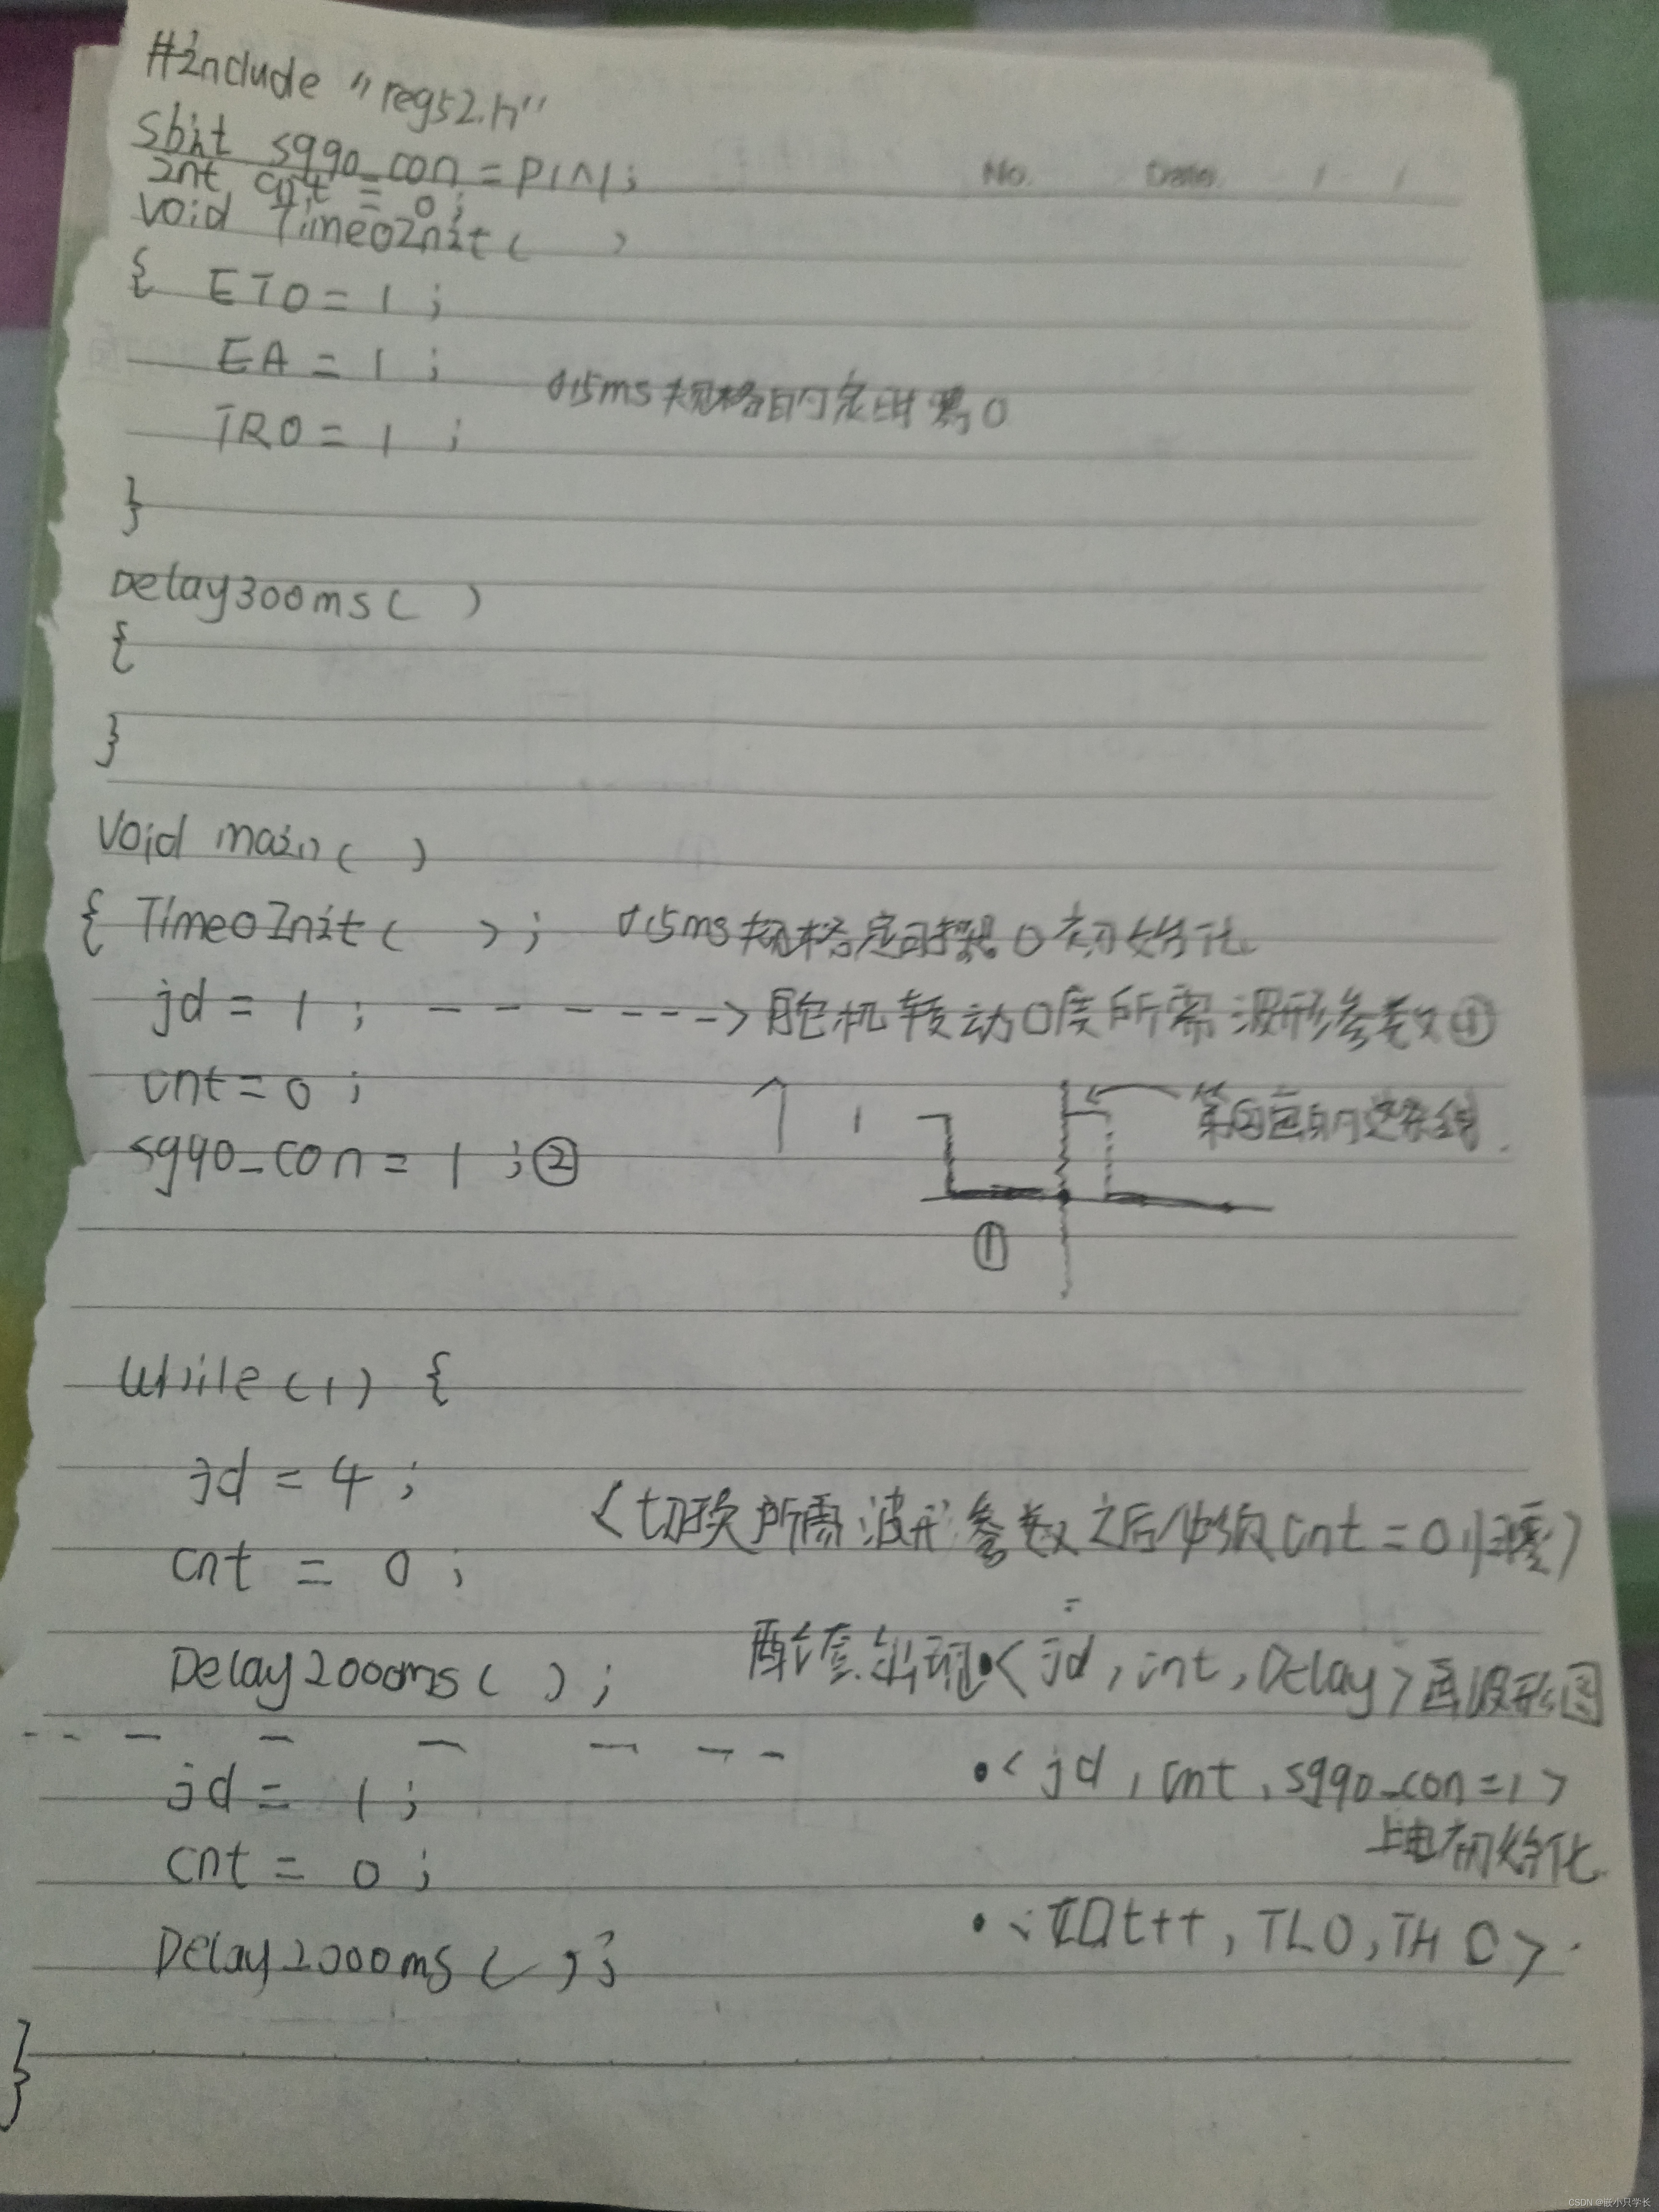 #include "reg52.h"
sbit sg90_con = P1^1;
No. Date / /
int cnt = 0;
void Time0Init( )
{ ET0 = 1 ;
EA = 1 ;
0.5ms 规格的定时器0
TR0 = 1 ;
}
Delay300ms( )
{
}
void main( )
{ Time0Init( ) ; 0.5ms 规格定时器0初始化
jd = 1 ; - - - - - -> 舵机转动0度所需波形参数①
cnt = 0 ;
1
sg90_con = 1 ; ②
①
while(1) {
jd = 4 ;
<切换所需波形参数之后必须cnt = 0归零>
cnt = 0 ;
Delay2000ms( ) ;
配套出现•< jd, cnt, Delay> 画波形图
jd = 1 ;
•< jd, cnt, sg90_con=1 >
上电初始化
cnt = 0 ;
•< t++, TL0, TH0 >
Delay2000ms( ) ;
}
CSDN @嵌小只学长